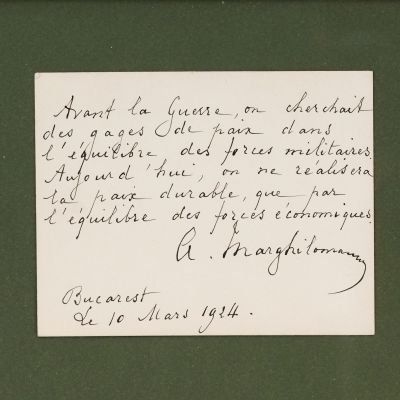 Avant la Guerre, on cherchait
des gages de paix dans
l'équilibre des forces militaires.
Aujourd'hui, on ne réalisera
la paix durable, que par
l'équilibre des forces économiques.
A. Marghiloman
Bucarest
Le 10 Mars 1924.